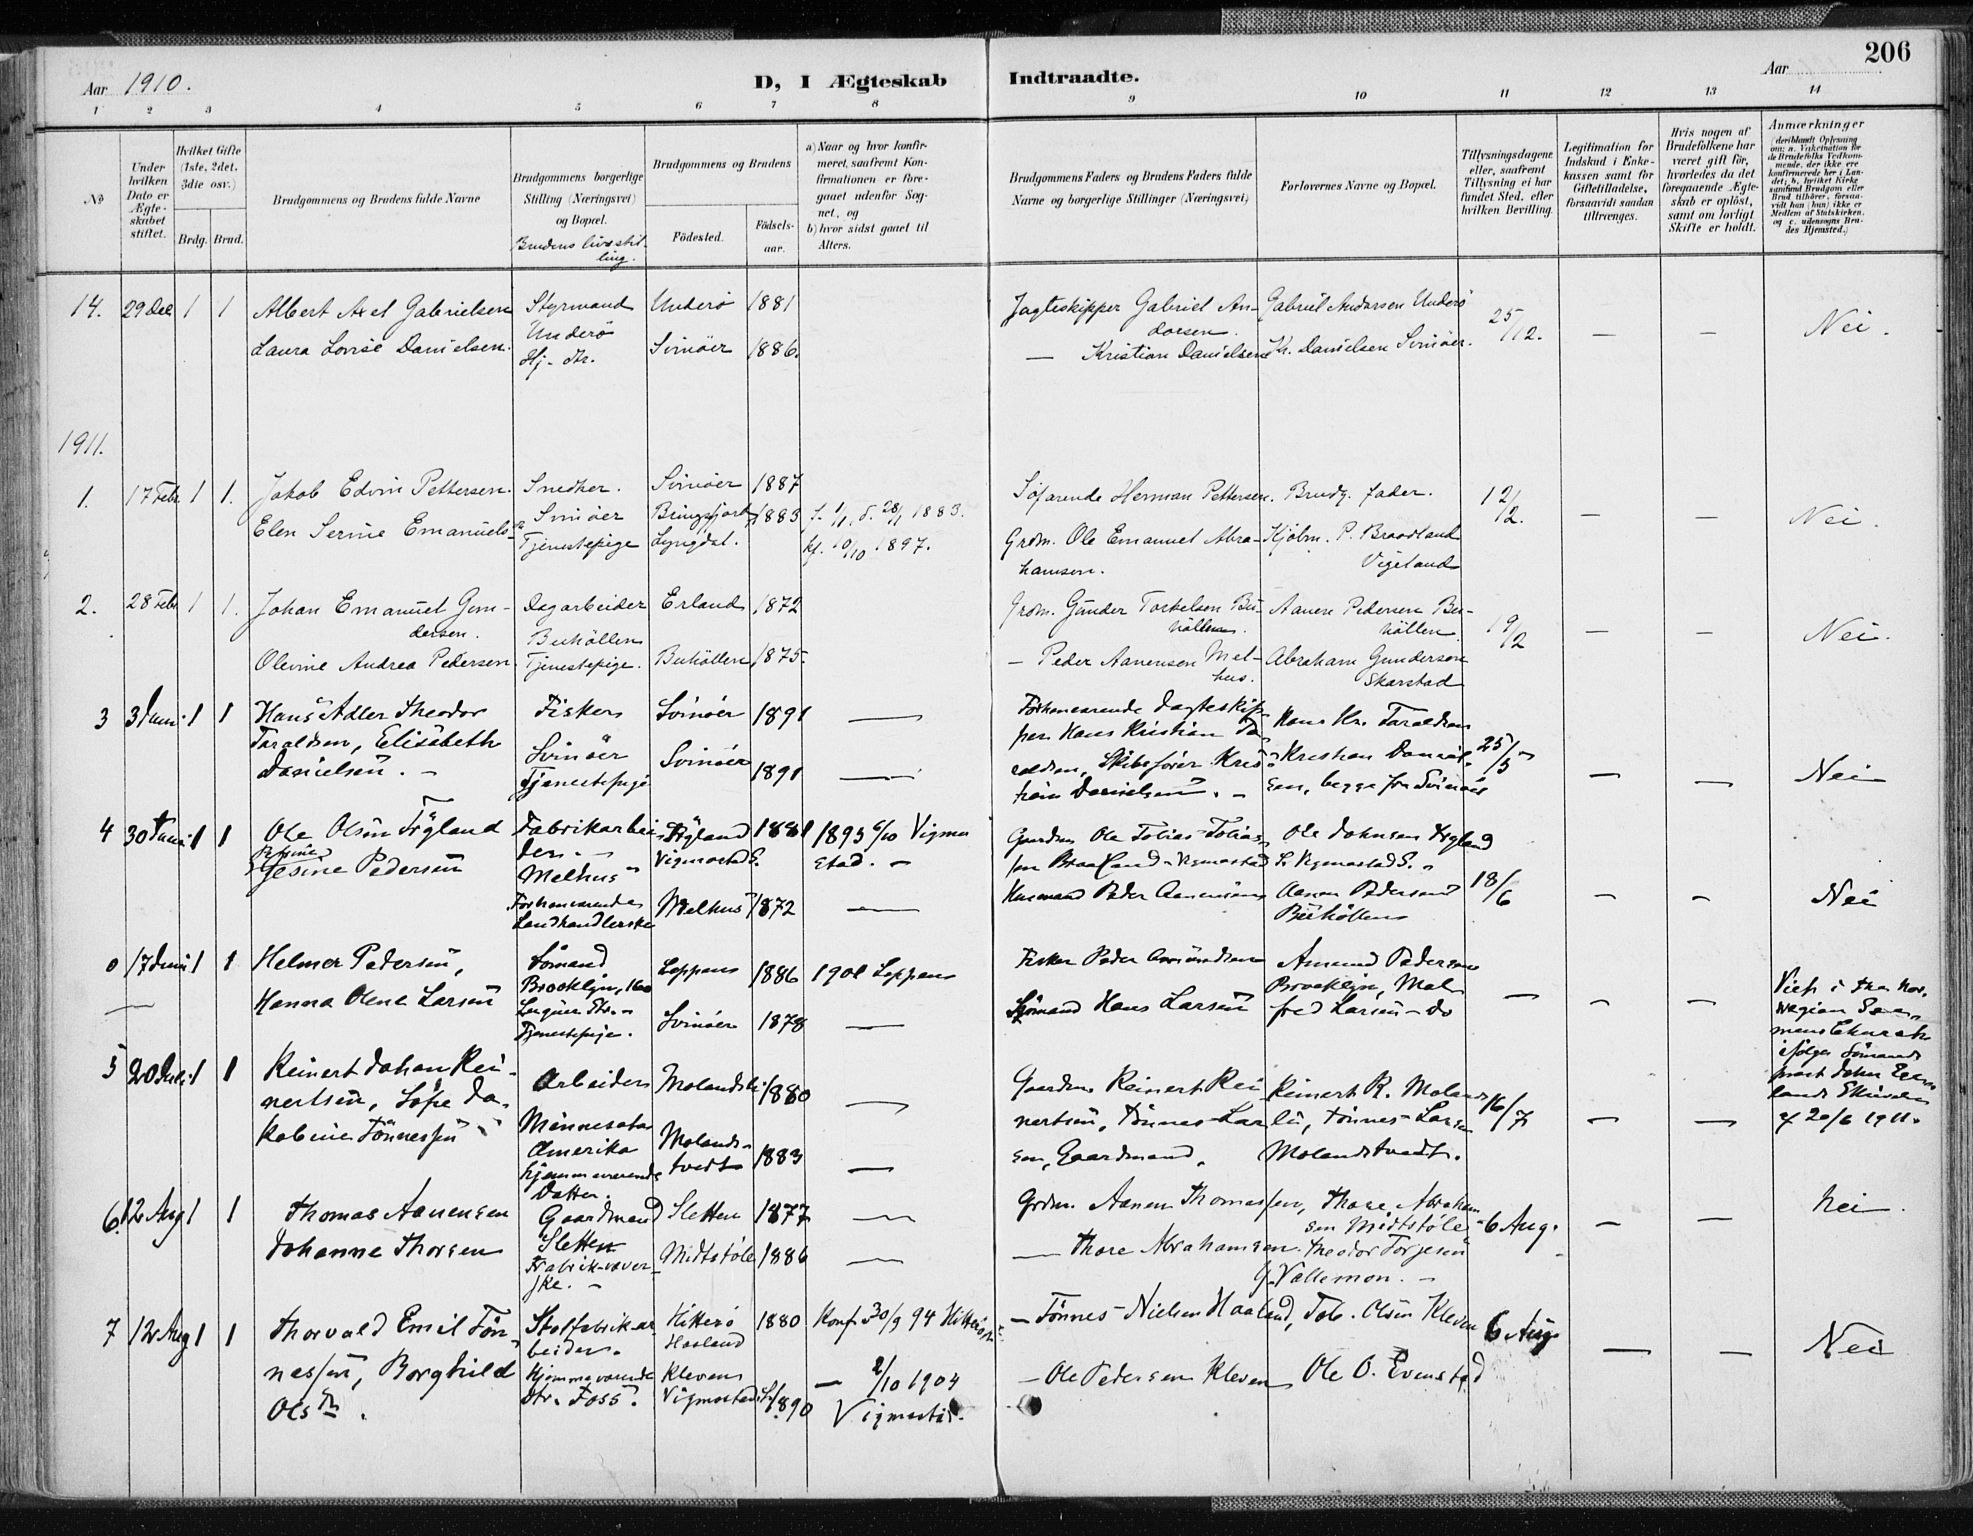 206
Aar 1910.
D, I Ægteskab Indtraadte.
Aar
1 2 3 4 5 6 7 8 9 10 11 12 13 14
No
Under hvilken Dato er Ægteskabet stiftet.
Hvilket Gifte (1ste, 2det, 3die osv.)
Brdg. Brud.
Brudgommens og Brudens fulde Navne
Brudgommens borgerlige Stilling (Næringsvei) og Bopæl.
Brudens livsstilling.
Brudgommens og Brudens
Födested.
Födselsaar.
a) Naar og hvor konfirmeret, saafremt Konfirmationen er foregaaet udenfor Sognet, og
b) hvor sidst gaaet til Alters.
Brudgommens Faders og Brudens Faders fulde Navne og borgerlige Stillinger (Næringsvei)
Forlovernes Navne og Bopæl.
Tillysningsdagene eller, saafremt Tillysning ei har fundet Sted, efter hvilken Bevilling.
Legitimation for Indskud i Enkekassen samt for Giftetilladelse, forsaavidt saadan tiltrænges.
Hvis nogen af Brudefolkene har været gift för, hvorledes da det foregaaende Ægteskab er oplöst, samt om lovligt Skifte er holdt.
Anmærkninger
14. 29 Dec 1 1
Albert Axel Gabrielsen
Laura Lovise Danielsen.
Styrmand
Underö
Hj. dtr.
Underö 1881
Svinöer 1886.
Jagteskipper Gabriel Andersen.
— Kristian Danielsen
Gabriel Andersen Underö
Kr. Danielsen Svinöer.
25/12.
— — Nei.
1911.
1. 17 Febr 1 1.
Jakob Edvin Pettersen.
Elen Serine Emanuels
Snedker.
Svinöer
Tjenestepige
Svinöer 1887
Lyngdal. 1883
f. 1/1 d. 28/1 1883.
kf. 10/10 1897.
Söfarende Herman Pettersen.
Grdm. Ole Emanuel Abrahamsen.
Brudg. fader.
Hjölm. P. Braadland
Vigeland
12/2.
— — Nei.
2. 28 Febr 1 1.
Johan Emanuel Gundersen.
Olevine Andrea Pedersen
Dagarbeider
Buhöllen
Tjenestepige.
Erland 1872
Buhöllen 1875.
Grdm. Gunder Torkelsen Buhöllen.
— Peder Aanensen Melhus.
Aanen Pedersen Buhöllen
Abraham Gundersen
Skarstad
19/2
— — Nei.
3 3 Juni 1 1
Hans Adler Theodor
Taraldsen, Elisabeth
Danielsen. —
Fisker
Svinöer
Tjenestepige
Svinöer 1891 —
Svinöer 1891 —
Forhenværende Jagteskipper Hans Kristian Taraldsen, Skibsförer Kristian Danielsen. —
Hans Kr. Taraldsen
Kristian Danielsen, begge fra Svinöer
25/5
— — Nei
4 30 Juni 1 1
Ole Olsen Trygland
Gesine Pedersen
Fabrikarbeider. —
Melhus
Forhenværende
Landhandlerske
Trygland
Vigmostad S. 1881
Melhus 1872
1895 6/10 Vigmostad. —
—
Gaardm. Ole Tobias Tobiassen
Husmand Peder Aanensen
Ole Johnsen Trygland
S. Vigmostad S.
Aanen Pedersen
Buhöllen
18/6
— — Nei
0 17 Juni 1 1
—
Helmer Pedersen,
Hanna Olene Larsen
Sömand
Brooklyn, 160
Tjenestepige.
Loppens 1886
Svinöer 1878
1901 Loppens
—
Fisker Peder Amundsen
Sjömand Hans Larsen
Amund Pedersen
Brooklyn, Malfred Larsen — do
— — —
Viet i the Norwegian Seamens Church
ifölge Sömandsprest
af 20/6 1911.
5 20 Juli 1 1
Reinert Johan Reinertsen, Sofie Jakobine Tönnessen
Arbeider
Minnesota
Amerika
hjemmeværende
Datter.
Molandsli 1880
Molandstvedt 1883
—
—
Gaardm. Reinert Reinertsen, Tönnes Larsen, Gaardmand.
Reinert R. Molandsli, Tönnes Larsen
Molandstvedt.
16/7
— —
6. 12 Aug 1 1
Thomas Aanensen
Johanne Thorsen
Gaardmand
Sletten
Fabrikvæverske. —
Sletten 1877 —
Midtstöle 1886 —
Grdm. Aanen Thomassen,
— Thore Abrahamsen.
Thore Abrahamsen Midtstöle
Theodor Torjesen
Vallemon. —
6 Aug.
— — Nei.
7 12 Aug 1 1
Thorvald Emil Tönnessen, Borghild
Olsen.
Stolfabrikarbeider.
Hjemmeværende
Dtr. Foss.
Hitterö
Haaland 1880
Kleven
Vigmostad S. 1890
Konf 30/9 94 Hitterö
— 2/10 1904
Vigmostad.
— Tönnes Nielsen Haaland,
— Ole Pedersen Kleven
Tob. Olsen Kleven
Ole O. Evenstad
6 Aug
— — Nei